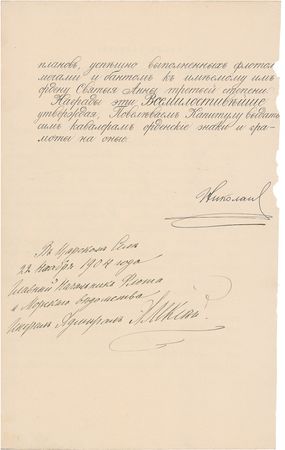 планов, успѣшно выполненныхъ флотом
могами и бантомъ къ имѣемому имъ
ордену Святыя Анны третьей степени.
Награды эти Всемилостивѣйше
утверждая, Повелѣваемъ Капитулу выдать
симъ кавалерамъ орденскіе знаки и гра-
моты на оные.
Николай
Въ Царскомъ Селѣ
22 Ноября 1904 года
Главный Начальникъ Флота
и Морского вѣдомства
Генералъ Адмиралъ